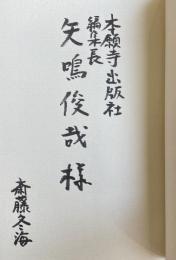 本願寺出版社
編集長
矢鳴俊哉様
斎藤冬海